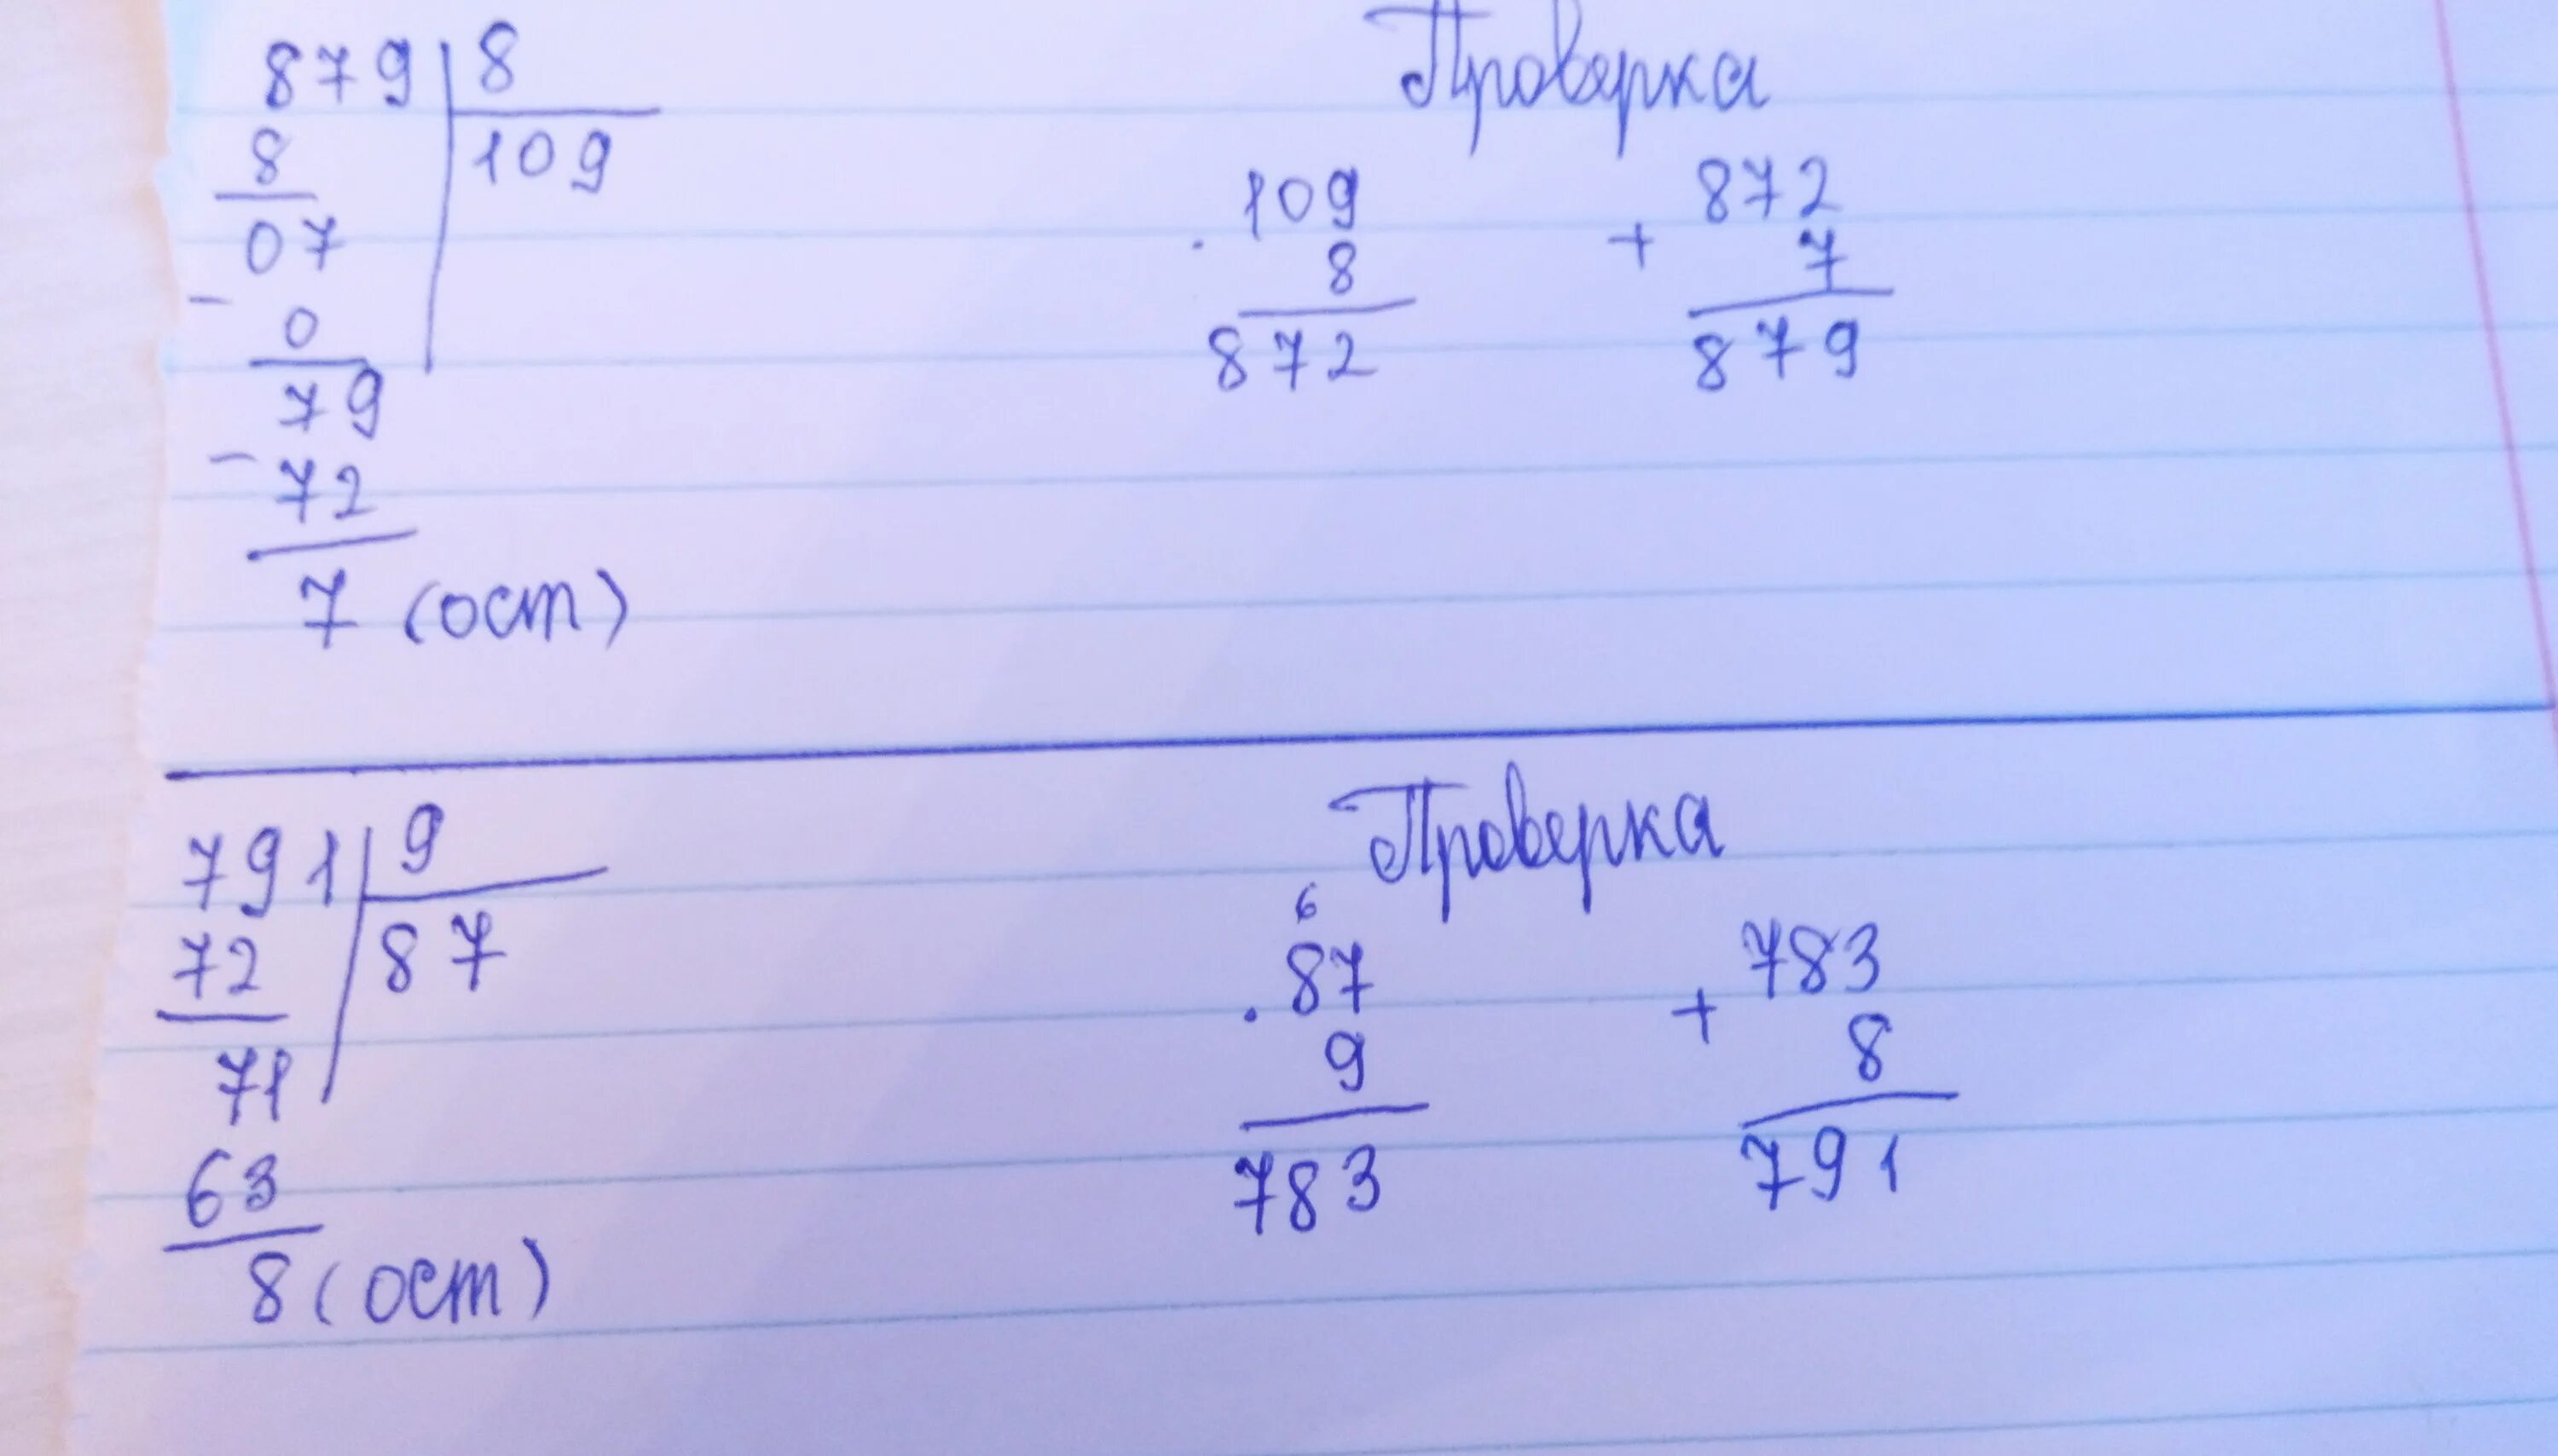 879 8
8 109
07
- 0
79
- 72
7 (ост)
Проверка
109
· 8
872
872
+ 7
879
791 9
72 87
71
63
8 (ост)
Проверка
6
87
· 9
783
783
+ 8
791